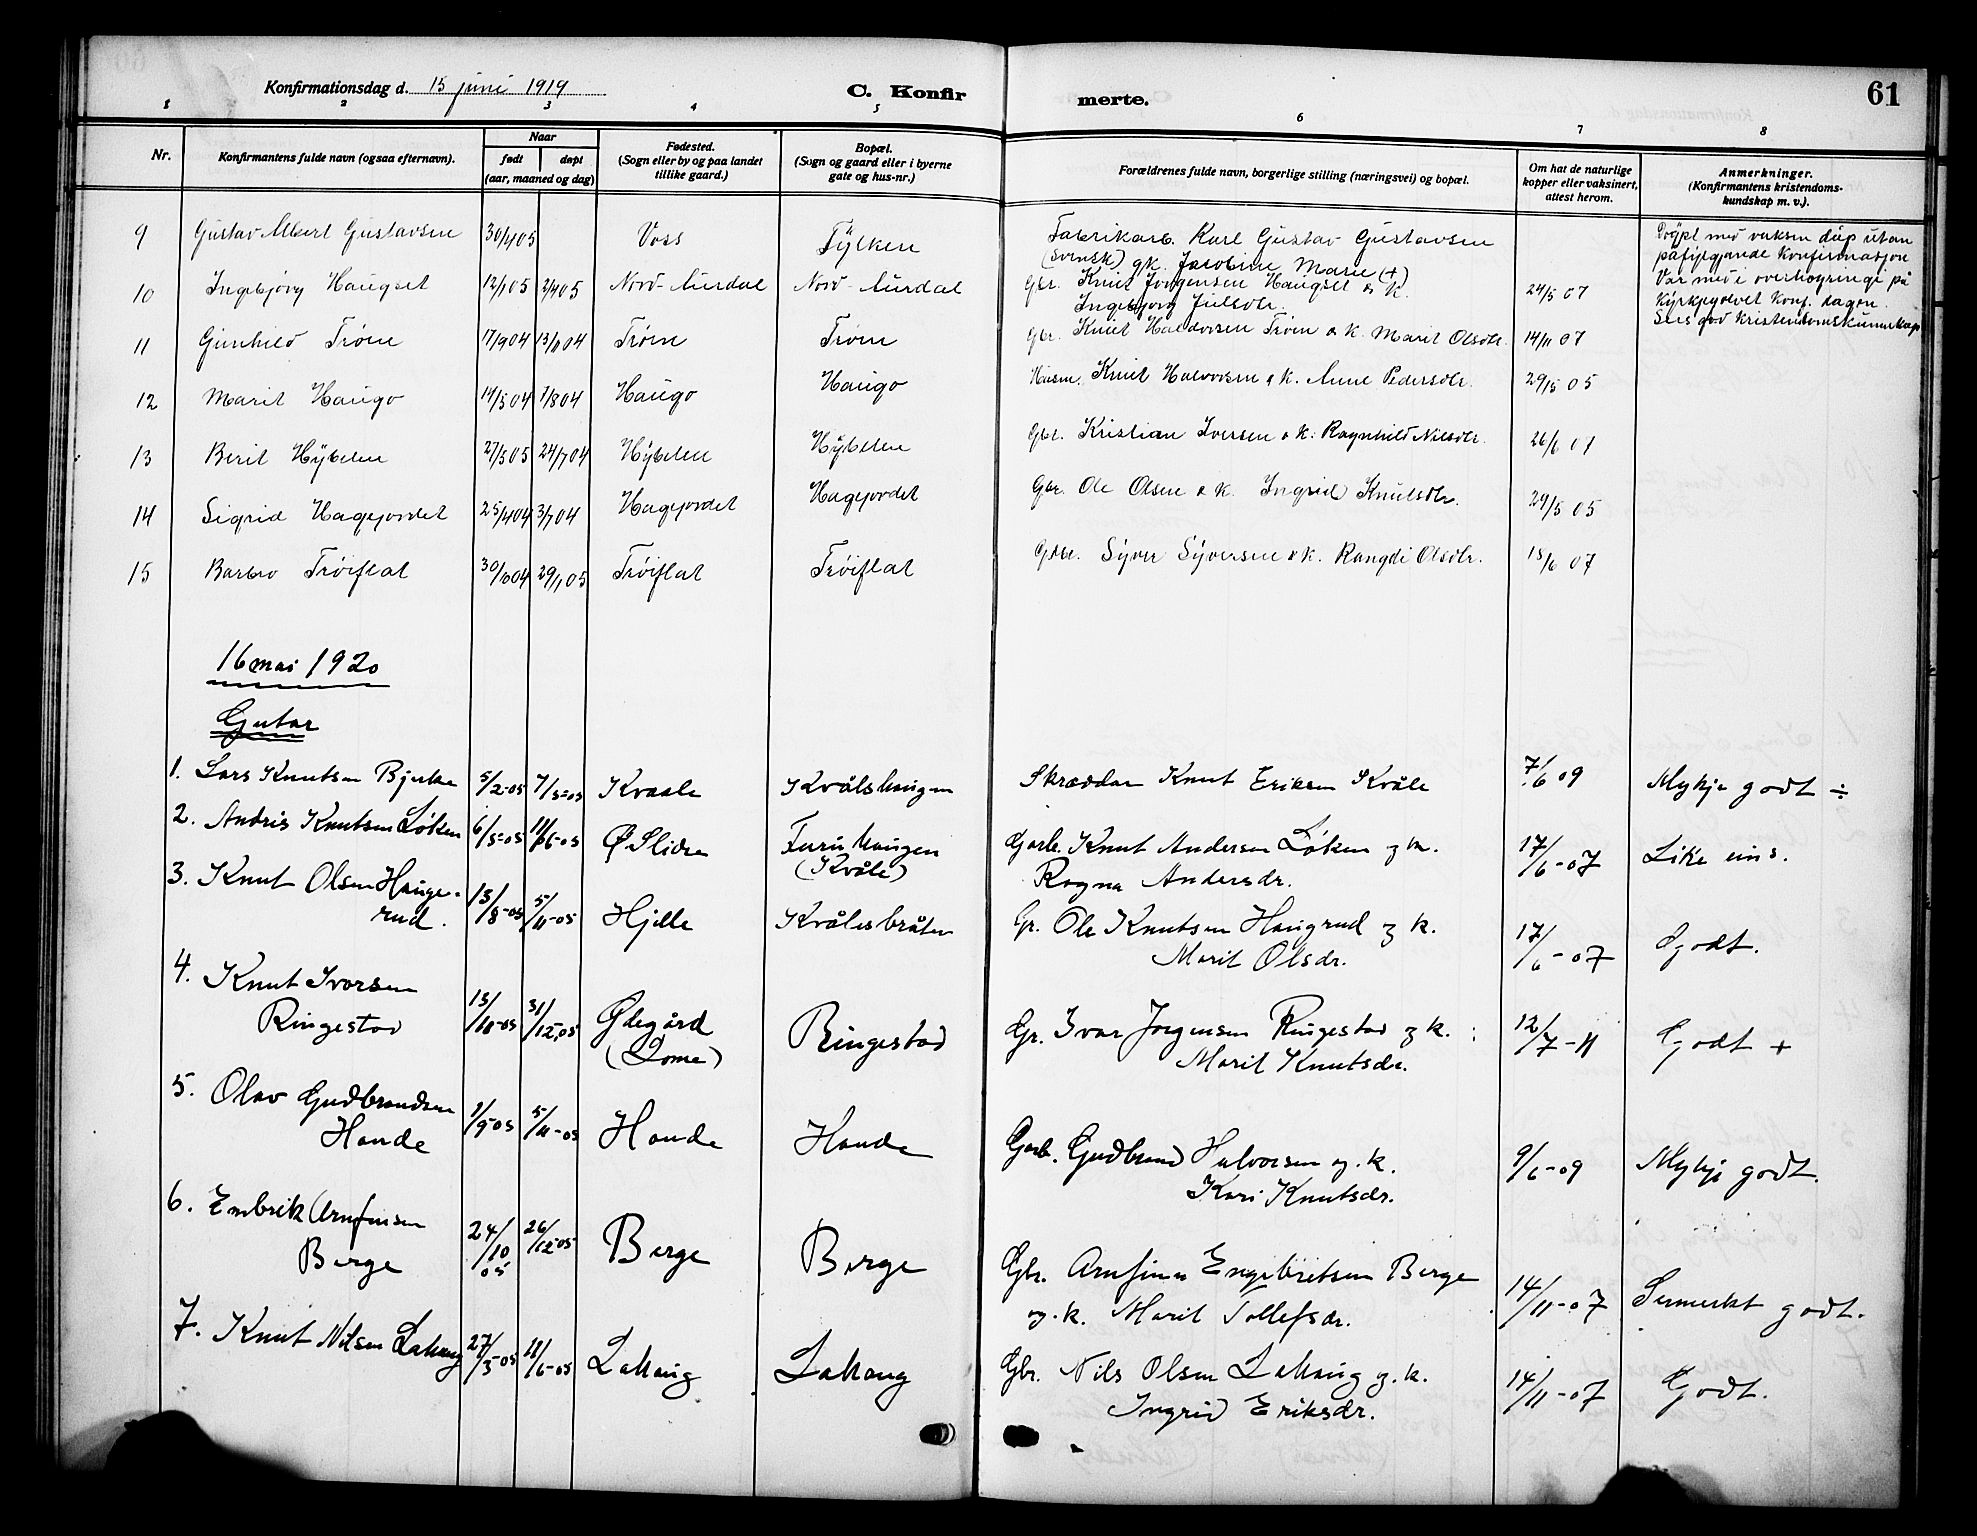 Konfirmationsdag d. 15 juni 1919
C. Konfirmerte.
61
1 2 3 4 5 6 7 8
Nr.
Konfirmantens fulde navn (ogsaa efternavn).
Naar
født døpt
(aar, maaned og dag)
Fødested.
(Sogn eller by og paa landet
tillike gaard.)
Bopæl.
(Sogn og gaard eller i byerne
gate og hus-nr.)
Forældrenes fulde navn, borgerlige stilling (næringsvei) og bopæl.
Om hat de naturlige
kopper eller vaksinert,
attest herom.
Anmerkninger.
(Konfirmantens kristendoms-
kundskap m. v.).
9 Gustav Albert Gustavsen 30/4 05 Voss Tylken Fabrikarb. Karl Gustav Gustavsen
(svensk) gk. Jacobine Marie (+)
Døypt med vaksen dåp utan
påfylgjande konfirmasjon
Var med i overhøyringi på
kyrkjegolvet konf. dagen.
God kristendomskunnskap
10 Ingebjørg Haugset 12/1 05 2/4 05 Nord-Aurdal Nord-Aurdal Gbr. Knut Jørgensen Haugset o k.
Ingebjørg Julsdtr. 24/5 07
11 Gunhild Trøim 17/9 04 13/11 04 Trøim Trøim Gbr. Knut Haldorsen Trøim o k. Marit Olsdtr. 14/11 07
12 Marit Haugo 14/5 04 7/8 04 Haugo Haugo Husm. Knut Halvorsen o k. Anne Pedersdtr. 29/5 05
13 Berit Hybelen 27/5 05 24/7 04 Hybelen Hybelen Gbr. Kristian Iversen o k. Ragnhild Nilsdtr. 26/6 07
14 Sigrid Hagejordet 25/4 04 3/7 04 Hagejordet Hagejordet Gbr. Ole Olsen o k. Ingrid Knutsdtr. 29/5 05
15 Barbro Trøiflat 30/10 04 29/1 05 Trøiflat Trøiflat Gdbr. Syver Syversen o k. Rangdi Olsdtr. 15/6 07
16 mai 1920
Gutar
1. Lars Knutsen Bjerke 5/2-05 7/5-05 Kvaale Kvålshaugen Skræddar Knut Eriksen Kvåle 7/6 09 Mykje godt ÷
2. Andris Knutsen Løken 6/5-05 11/6-05 Ø Slidre Furuhaugen
(Kvåle) Garb. Knut Andersen Løken og k.
Ragna Andersdr. 17/6-07 Like eins.
3. Knut Olsen Hauge-
rud. 13/8-05 5/11-05 Hjelle Kvålesbråten Gr. Ole Knutsen Haugrud og k.
Marit Olsdr. 17/6-07 Godt.
4. Knut Ivarsen
Ringestad 13/10-05 31/12-05 Ødegård
(Lome) Ringestad Gr. Ivar Jørgensen Ringestad og k.:
Marit Knutsdr. 12/7-11 Godt +
5. Olav Gudbrandsen
Hande 1/9-05 5/11-05 Hande Hande Garb. Gudbrand Halvorsen og. k.
Kari Knutsdr. 9/6-09 Mykje godt.
6. Embrik Arnfinsen
Berge 24/10 05 26/12-05 Berge Berge Gbr. Arnfinn Engebretsen Berge
og. k. Marit Tollefsdr. 14/11-07 Sermerkt godt.
7. Knut Nilsen Lakaug 27/3-05 11/6-05 Lakaug Lakaug Gbr. Nils Olsen Lakaug og. k.
Ingrid Eriksdr. 14/11-07 Godt.